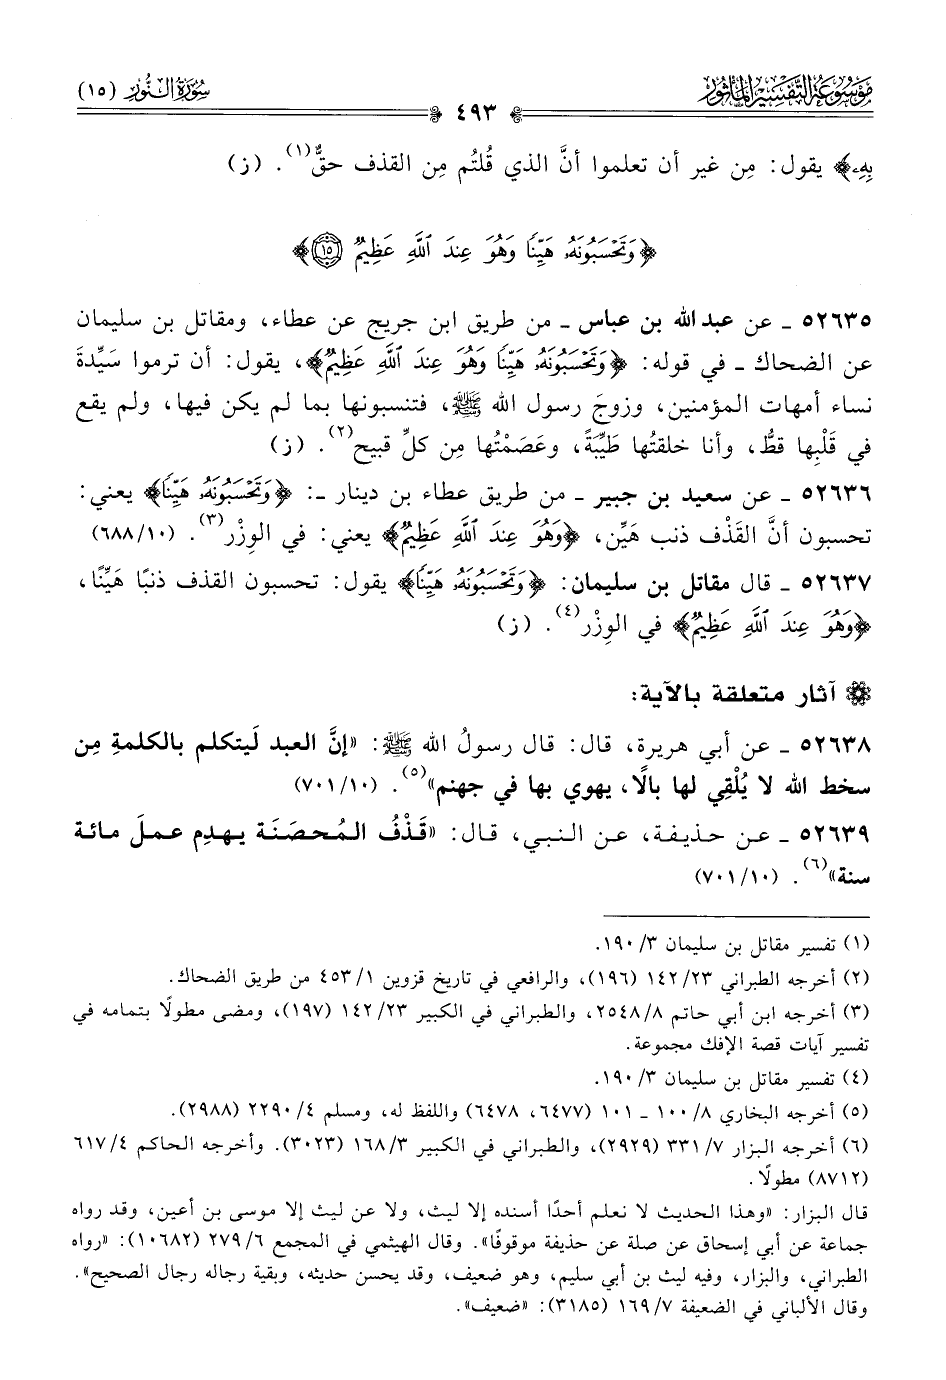 موسوعة التفسير المأثور
سورة النور (١٥)
٤٩٣
بِهِۦ﴾ يقول: مِن غير أن تعلموا أنَّ الذي قُلتُم مِن القذف حقٌّ(١). (ز)
﴿وَتَحْسَبُونَهُۥ هَيِّنًا وَهُوَ عِندَ ٱللَّهِ عَظِيمٌ ۝١٥﴾
٥٢٦٣٥ ـ عن عبد الله بن عباس ـ من طريق ابن جريج عن عطاء، ومقاتل بن سليمان
عن الضحاك ـ في قوله: ﴿وَتَحْسَبُونَهُۥ هَيِّنًا وَهُوَ عِندَ ٱللَّهِ عَظِيمٌ﴾، يقول: أن ترموا سَيِّدةَ
نساء أمهات المؤمنين، وزوجَ رسول الله ﷺ، فتنسبونها بما لم يكن فيها، ولم يقع
في قَلْبِها قطُّ، وأنا خلقتُها طَيِّبَةً، وعَصَمْتُها مِن كلِّ قبيح(٢). (ز)
٥٢٦٣٦ ـ عن سعيد بن جبير ـ من طريق عطاء بن دينار ـ: ﴿وَتَحْسَبُونَهُۥ هَيِّنًا﴾ يعني:
تحسبون أنَّ القَذْف ذنب هَيِّن، ﴿وَهُوَ عِندَ ٱللَّهِ عَظِيمٌ﴾ يعني: في الوِزْر(٣). (٦٨٨/١٠)
٥٢٦٣٧ ـ قال مقاتل بن سليمان: ﴿وَتَحْسَبُونَهُۥ هَيِّنًا﴾ يقول: تحسبون القذف ذنبًا هَيِّنًا،
﴿وَهُوَ عِندَ ٱللَّهِ عَظِيمٌ﴾ في الوِزْر(٤). (ز)
آثار متعلقة بالآية:
٥٢٦٣٨ ـ عن أبي هريرة، قال: قال رسولُ الله ﷺ: «إنَّ العبد لَيتكلم بالكلمةِ مِن
سخط الله لا يُلْقِي لها بالًا، يهوي بها في جهنم»(٥). (٧٠١/١٠)
٥٢٦٣٩ ـ عن حذيفة، عن النبي، قال: «قَذْفُ المُحصَنَة يهدِم عملَ مائة
سنة»(٦). (٧٠١/١٠)
(١) تفسير مقاتل بن سليمان ٣/ ١٩٠.
(٢) أخرجه الطبراني ٢٣/ ١٤٢ (١٩٦)، والرافعي في تاريخ قزوين ١/ ٤٥٣ من طريق الضحاك.
(٣) أخرجه ابن أبي حاتم ٨/ ٢٥٤٨، والطبراني في الكبير ٢٣/ ١٤٢ (١٩٧)، ومضى مطولًا بتمامه في
تفسير آيات قصة الإفك مجموعة.
(٤) تفسير مقاتل بن سليمان ٣/ ١٩٠.
(٥) أخرجه البخاري ٨/ ١٠٠ ـ ١٠١ (٦٤٧٧، ٦٤٧٨) واللفظ له، ومسلم ٤/ ٢٢٩٠ (٢٩٨٨).
(٦) أخرجه البزار ٧/ ٣٣١ (٢٩٢٩)، والطبراني في الكبير ٣/ ١٦٨ (٣٠٢٣). وأخرجه الحاكم ٤/ ٦١٧
(٨٧١٢) مطولًا.
قال البزار: «وهذا الحديث لا نعلم أحدًا أسنده إلا ليث، ولا عن ليث إلا موسى بن أعين، وقد رواه
جماعة عن أبي إسحاق عن صلة عن حذيفة موقوفًا». وقال الهيثمي في المجمع ٦/ ٢٧٩ (١٠٦٨٢): «رواه
الطبراني، والبزار، وفيه ليث بن أبي سليم، وهو ضعيف، وقد يحسن حديثه، وبقية رجاله رجال الصحيح».
وقال الألباني في الضعيفة ٧/ ١٦٩ (٣١٨٥): «ضعيف».